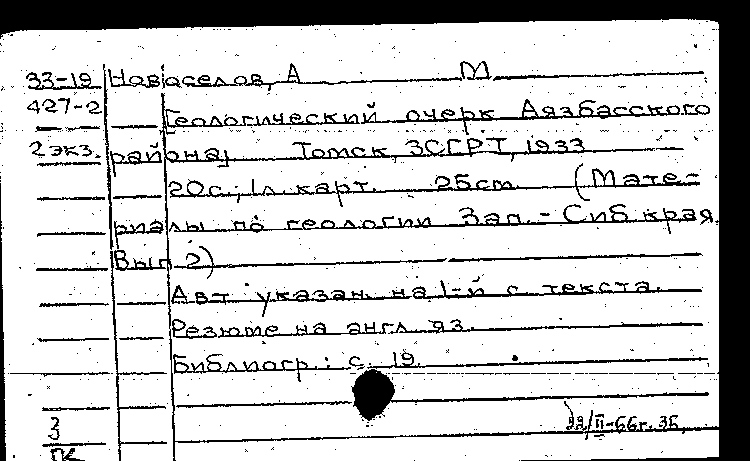 33-19 Новоселов, А М
427-2 Геологический очерк Аязбасского
2 экз. района, Томск, ЗСГРТ, 1933
20с.; 1л. карт. 25см. (Мате-
риалы по геологии Зап.-Сиб края
Вып 2)
Авт указан на 1-й с текста.
Резюме на англ яз.
Библиогр.: с. 19.
22/II-66г. ЗБ
3
ПК